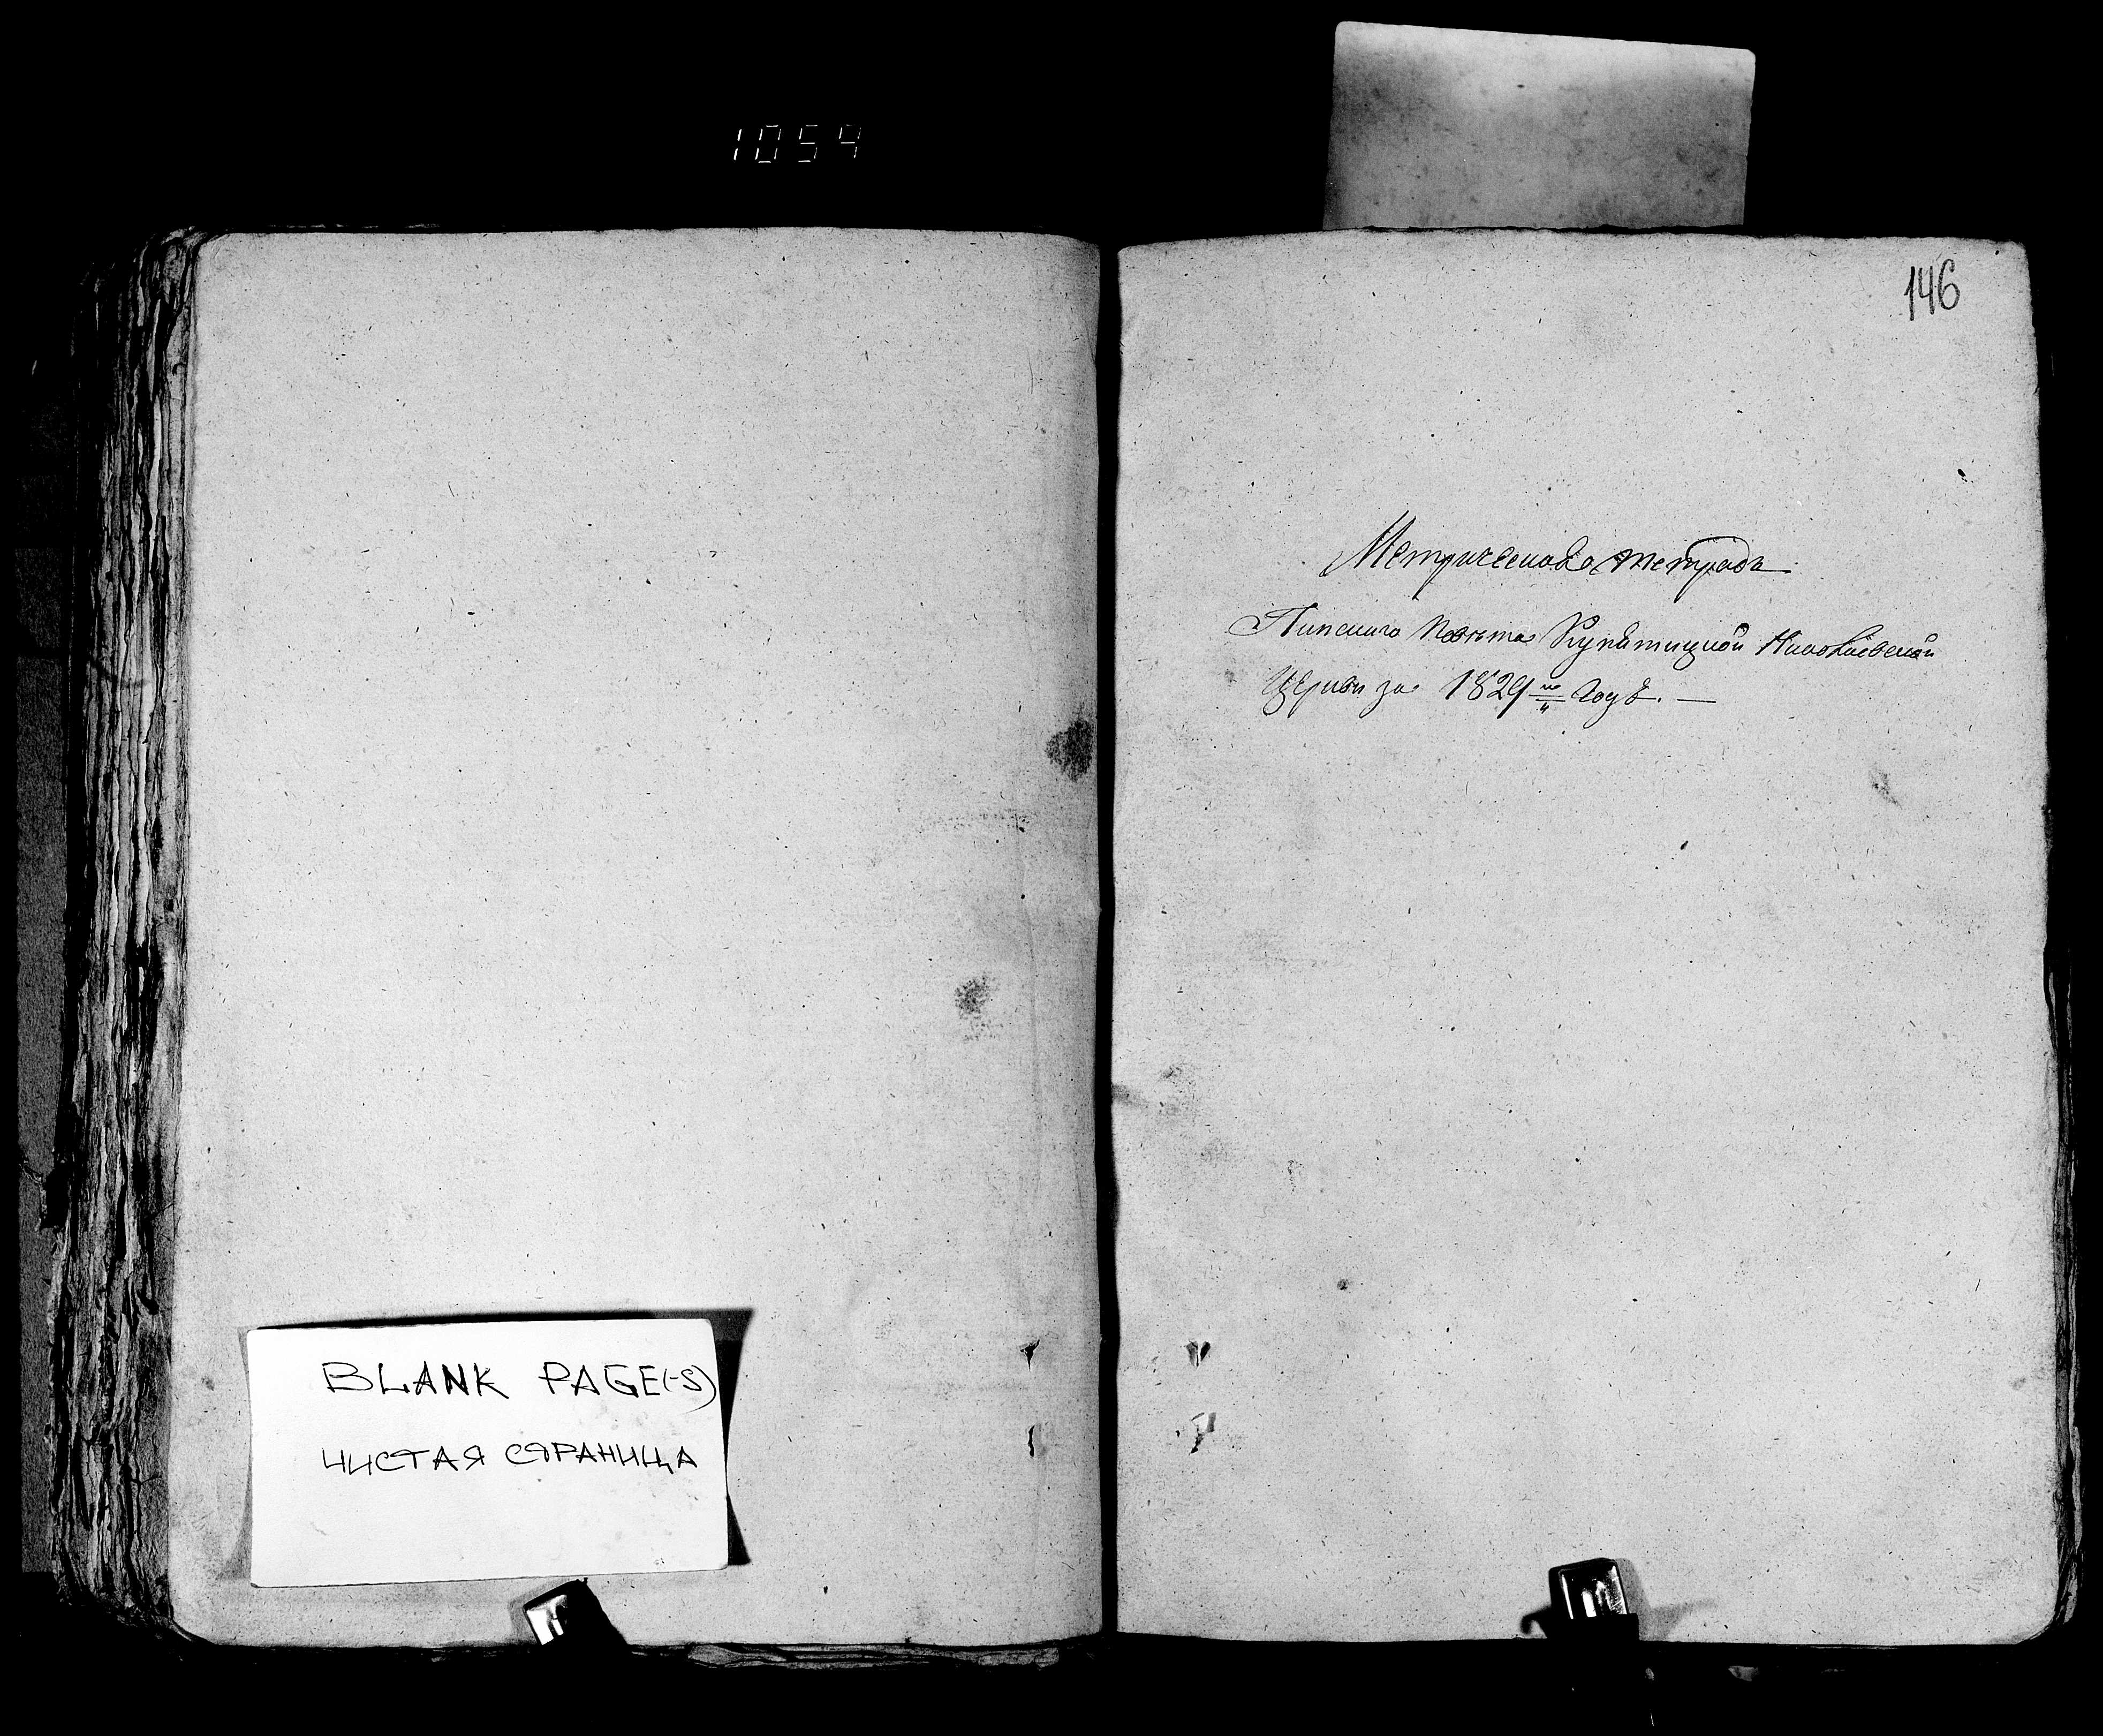 1054
146
Метрическая тетрадь
Пинскаго Повѣта Купятицкой Николаевской
Церкви за 1829 годъ. —
BLANK PAGE(-S)
ЧИСТАЯ СТРАНИЦА